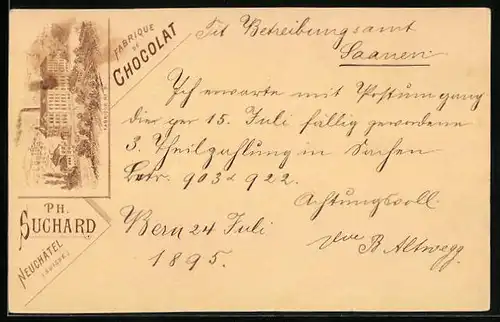 FABRIQUE
DE
CHOCOLAT
PH.
SUCHARD
NEUCHATEL
(SUISSE)
Tit Betreibungsamt
Saanen
Ich erwarte mit Postumgang
die per 15. Juli fällig gewordene
3. Theilzahlung in Sachen
Betr. 903 & 922.
Achtungsvoll
Bern 24 Juli
1895.
B. Altwegg